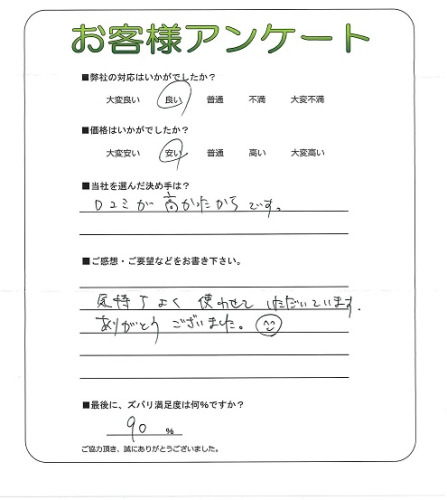 お客様アンケート
■弊社の対応はいかがでしたか？
大変良い 良い 普通 不満 大変不満
■価格はいかがでしたか？
大変安い 安い 普通 高い 大変高い
■当社を選んだ決め手は？
口コミが高かったからです。
■ご感想・ご要望などをお書き下さい。
気持ちよく使わせていただいています.
ありがとうございました。
■最後に、ズバリ満足度は何%ですか？
90 %
ご協力頂き、誠にありがとうございました。